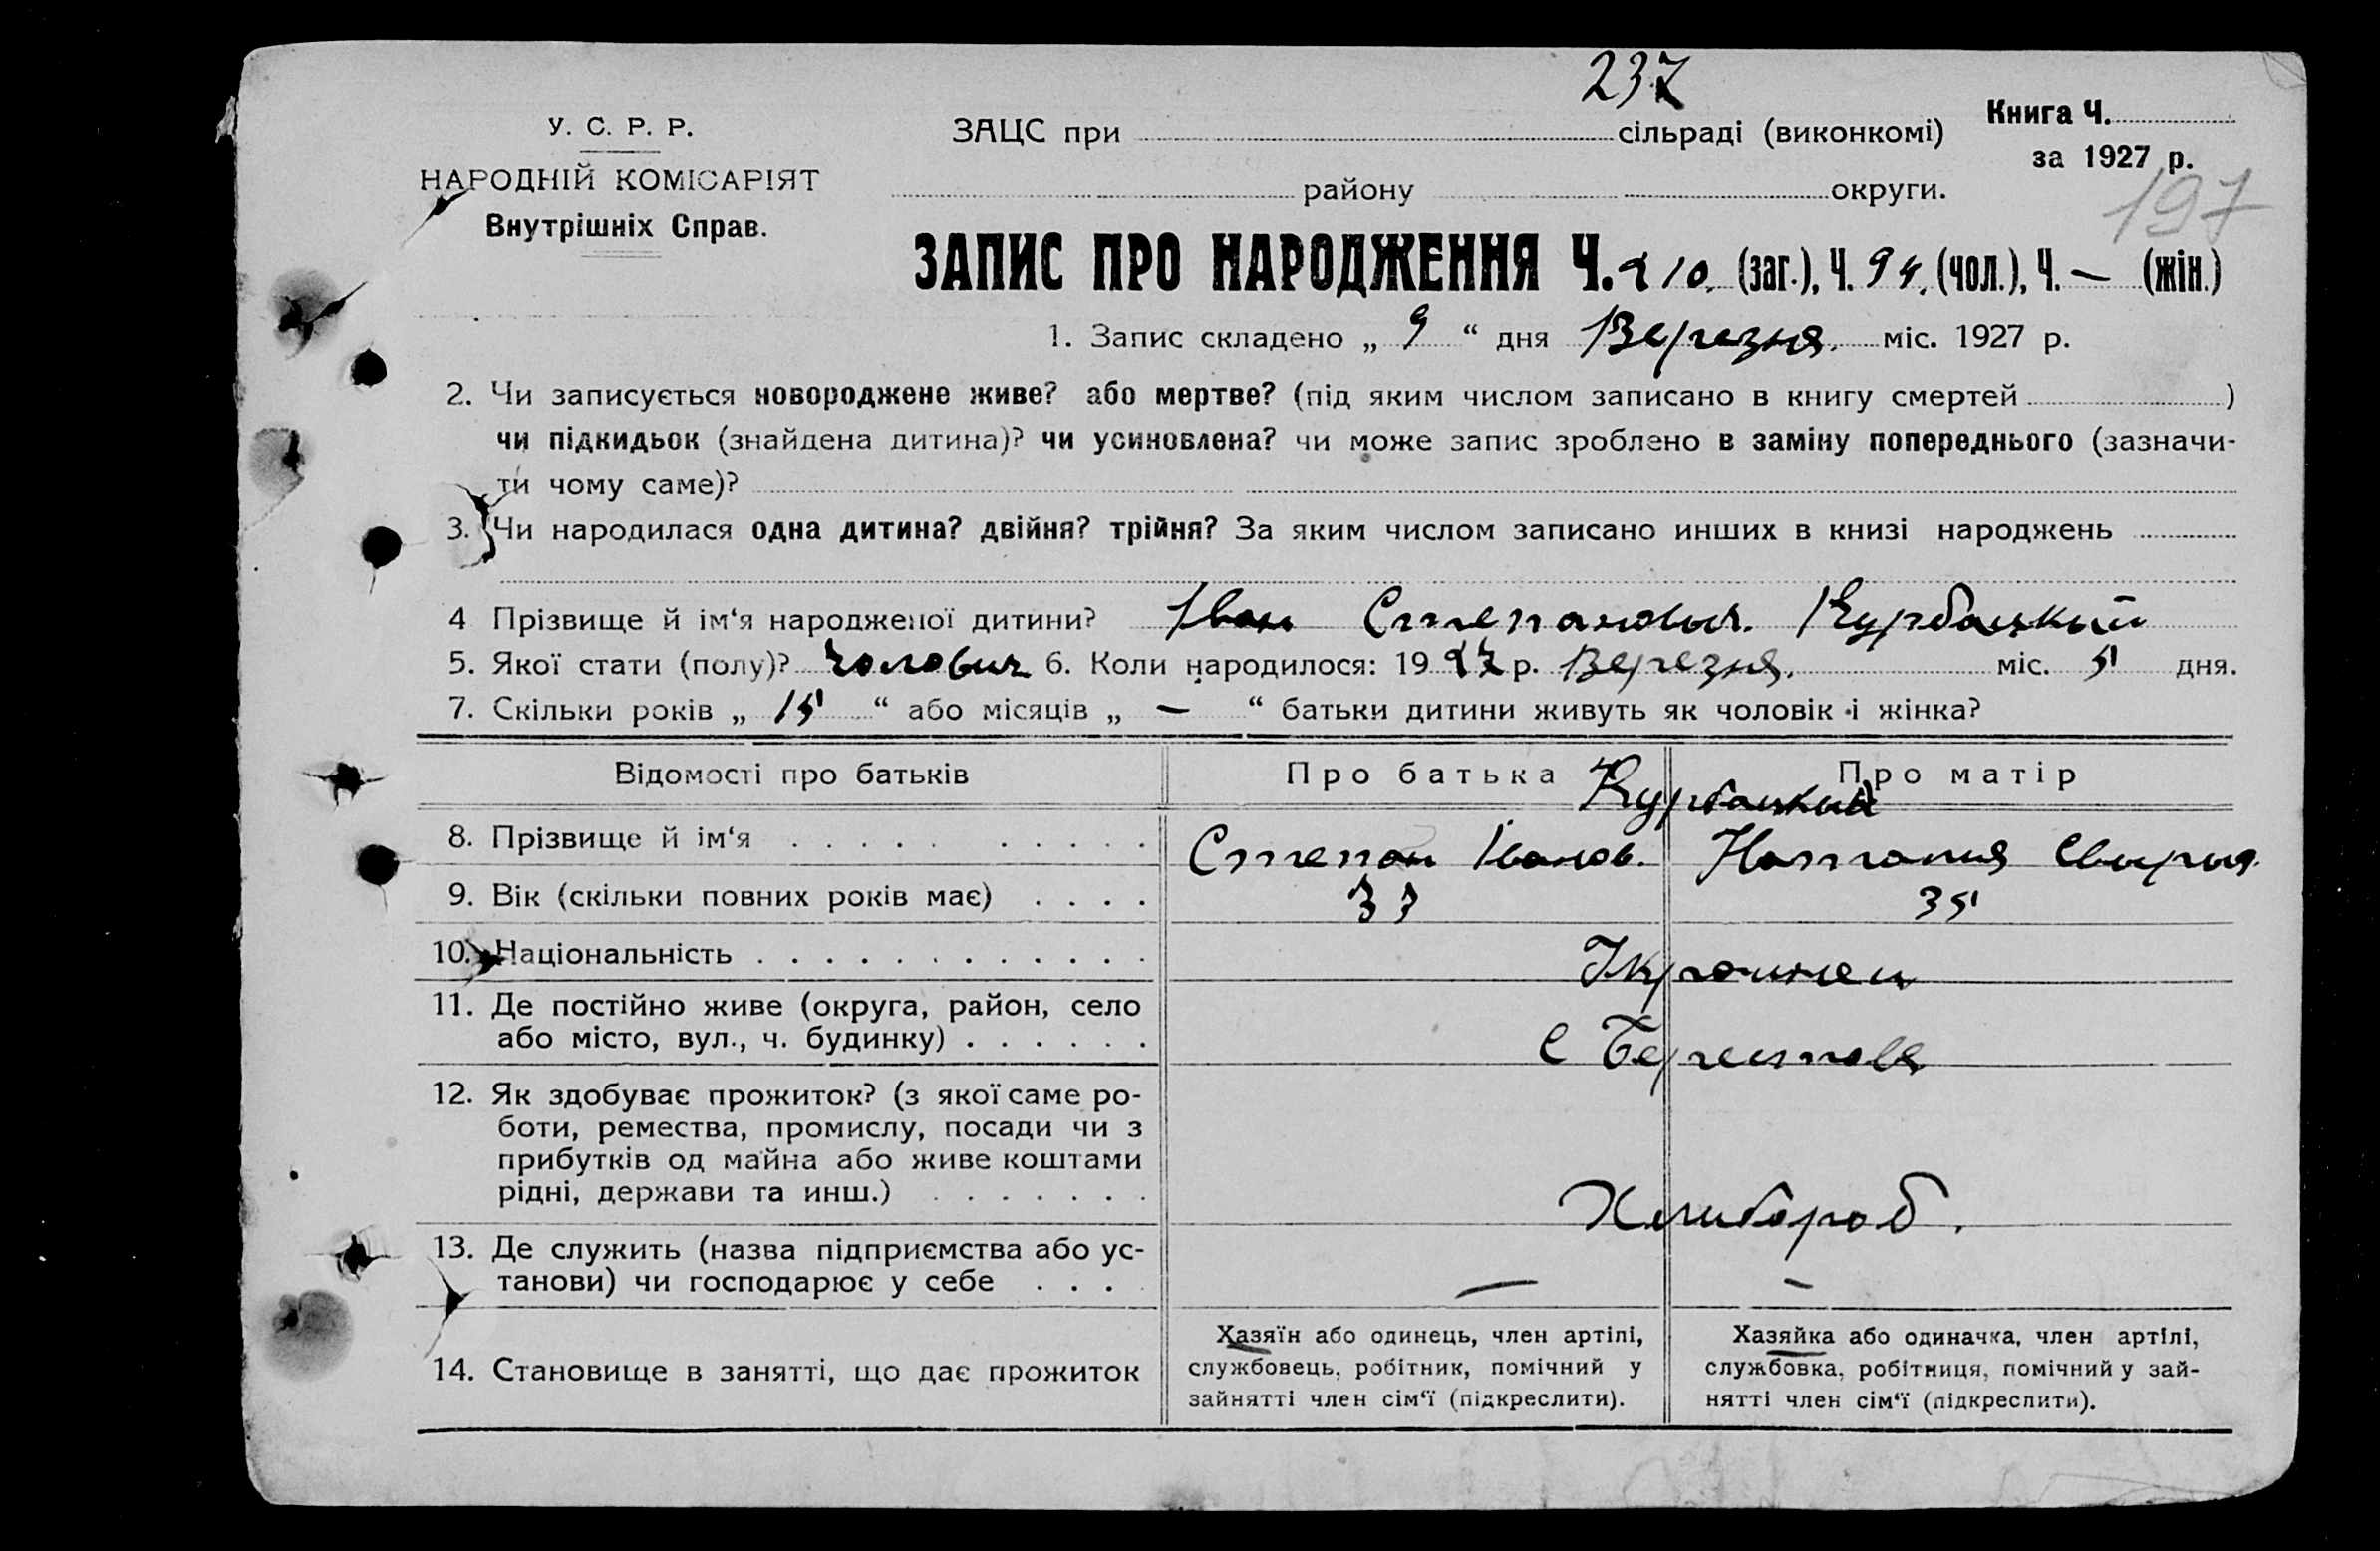 237
У. С. Р. Р.
НАРОДНІЙ КОМІСАРІЯТ
Внутрішніх Справ.
ЗАЦС при сільраді (виконкомі)
району округи.
Книга Ч.
за 1927 р.
197
ЗАПИС ПРО НАРОДЖЕННЯ Ч. 210. (заг.), Ч. 94. (чол.), Ч. — (жін.)
1. Запис складено „ 9 “ дня Березня. міс. 1927 р.
2. Чи записується новороджене живе? або мертве? (під яким числом записано в книгу смертей )
чи підкидьок (знайдена дитина)? чи усиновлена? чи може запис зроблено в заміну попереднього (зазначи-
ти чому саме)?
3. Чи народилася одна дитина? двійня? трійня? За яким числом записано инших в книзі народжень
4 Прізвище й ім‘я народженої дитини? Іван Степанович. Курбацкий
5. Якої стати (полу)? Чолович 6. Коли народилося: 1927 р. Березня. міс. 5 дня.
7. Скільки років „ 15 “ або місяців „ — “ батьки дитини живуть як чоловік і жінка?
Відомості про батьків Про батька Про матір
Курбацкий
8. Прізвище й ім‘я Степан Іванов. Наталия Свирид.
9. Вік (скільки повних років має) 37 35
10. Національність Украинец
11. Де постійно живе (округа, район, село
або місто, вул., ч. будинку) С Берестова
12. Як здобуває прожиток? (з якої саме ро-
боти, ремества, промислу, посади чи з
прибутків од майна або живе коштами
рідні, держави та инш.) Хлибороб.
13. Де служить (назва підприємства або ус-
танови) чи господарює у себе — —
14. Становище в занятті, що дає прожиток
Хазяїн або одинець, член артілі,
службовець, робітник, помічний у
зайнятті член сім‘ї (підкреслити).
Хазяйка або одиначка, член артілі,
службовка, робітниця, помічний у зай-
нятті член сім‘ї (підкреслити).